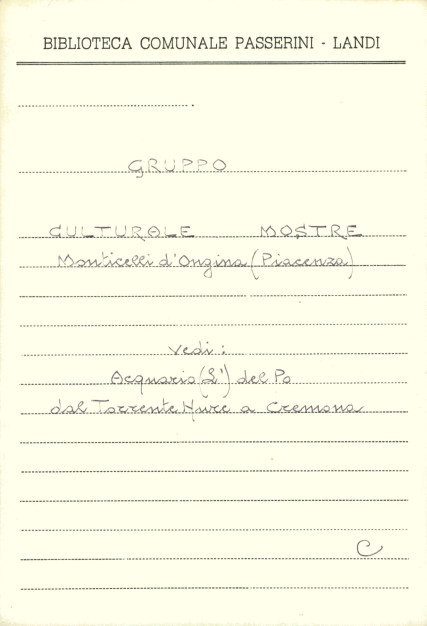 BIBLIOTECA COMUNALE PASSERINI - LANDI
GRUPPO
CULTURALE MOSTRE
Monticelli d'Ongina (Piacenza)
vedi :
Acquario (L') del Po
dal Torrente Nure a Cremona
C